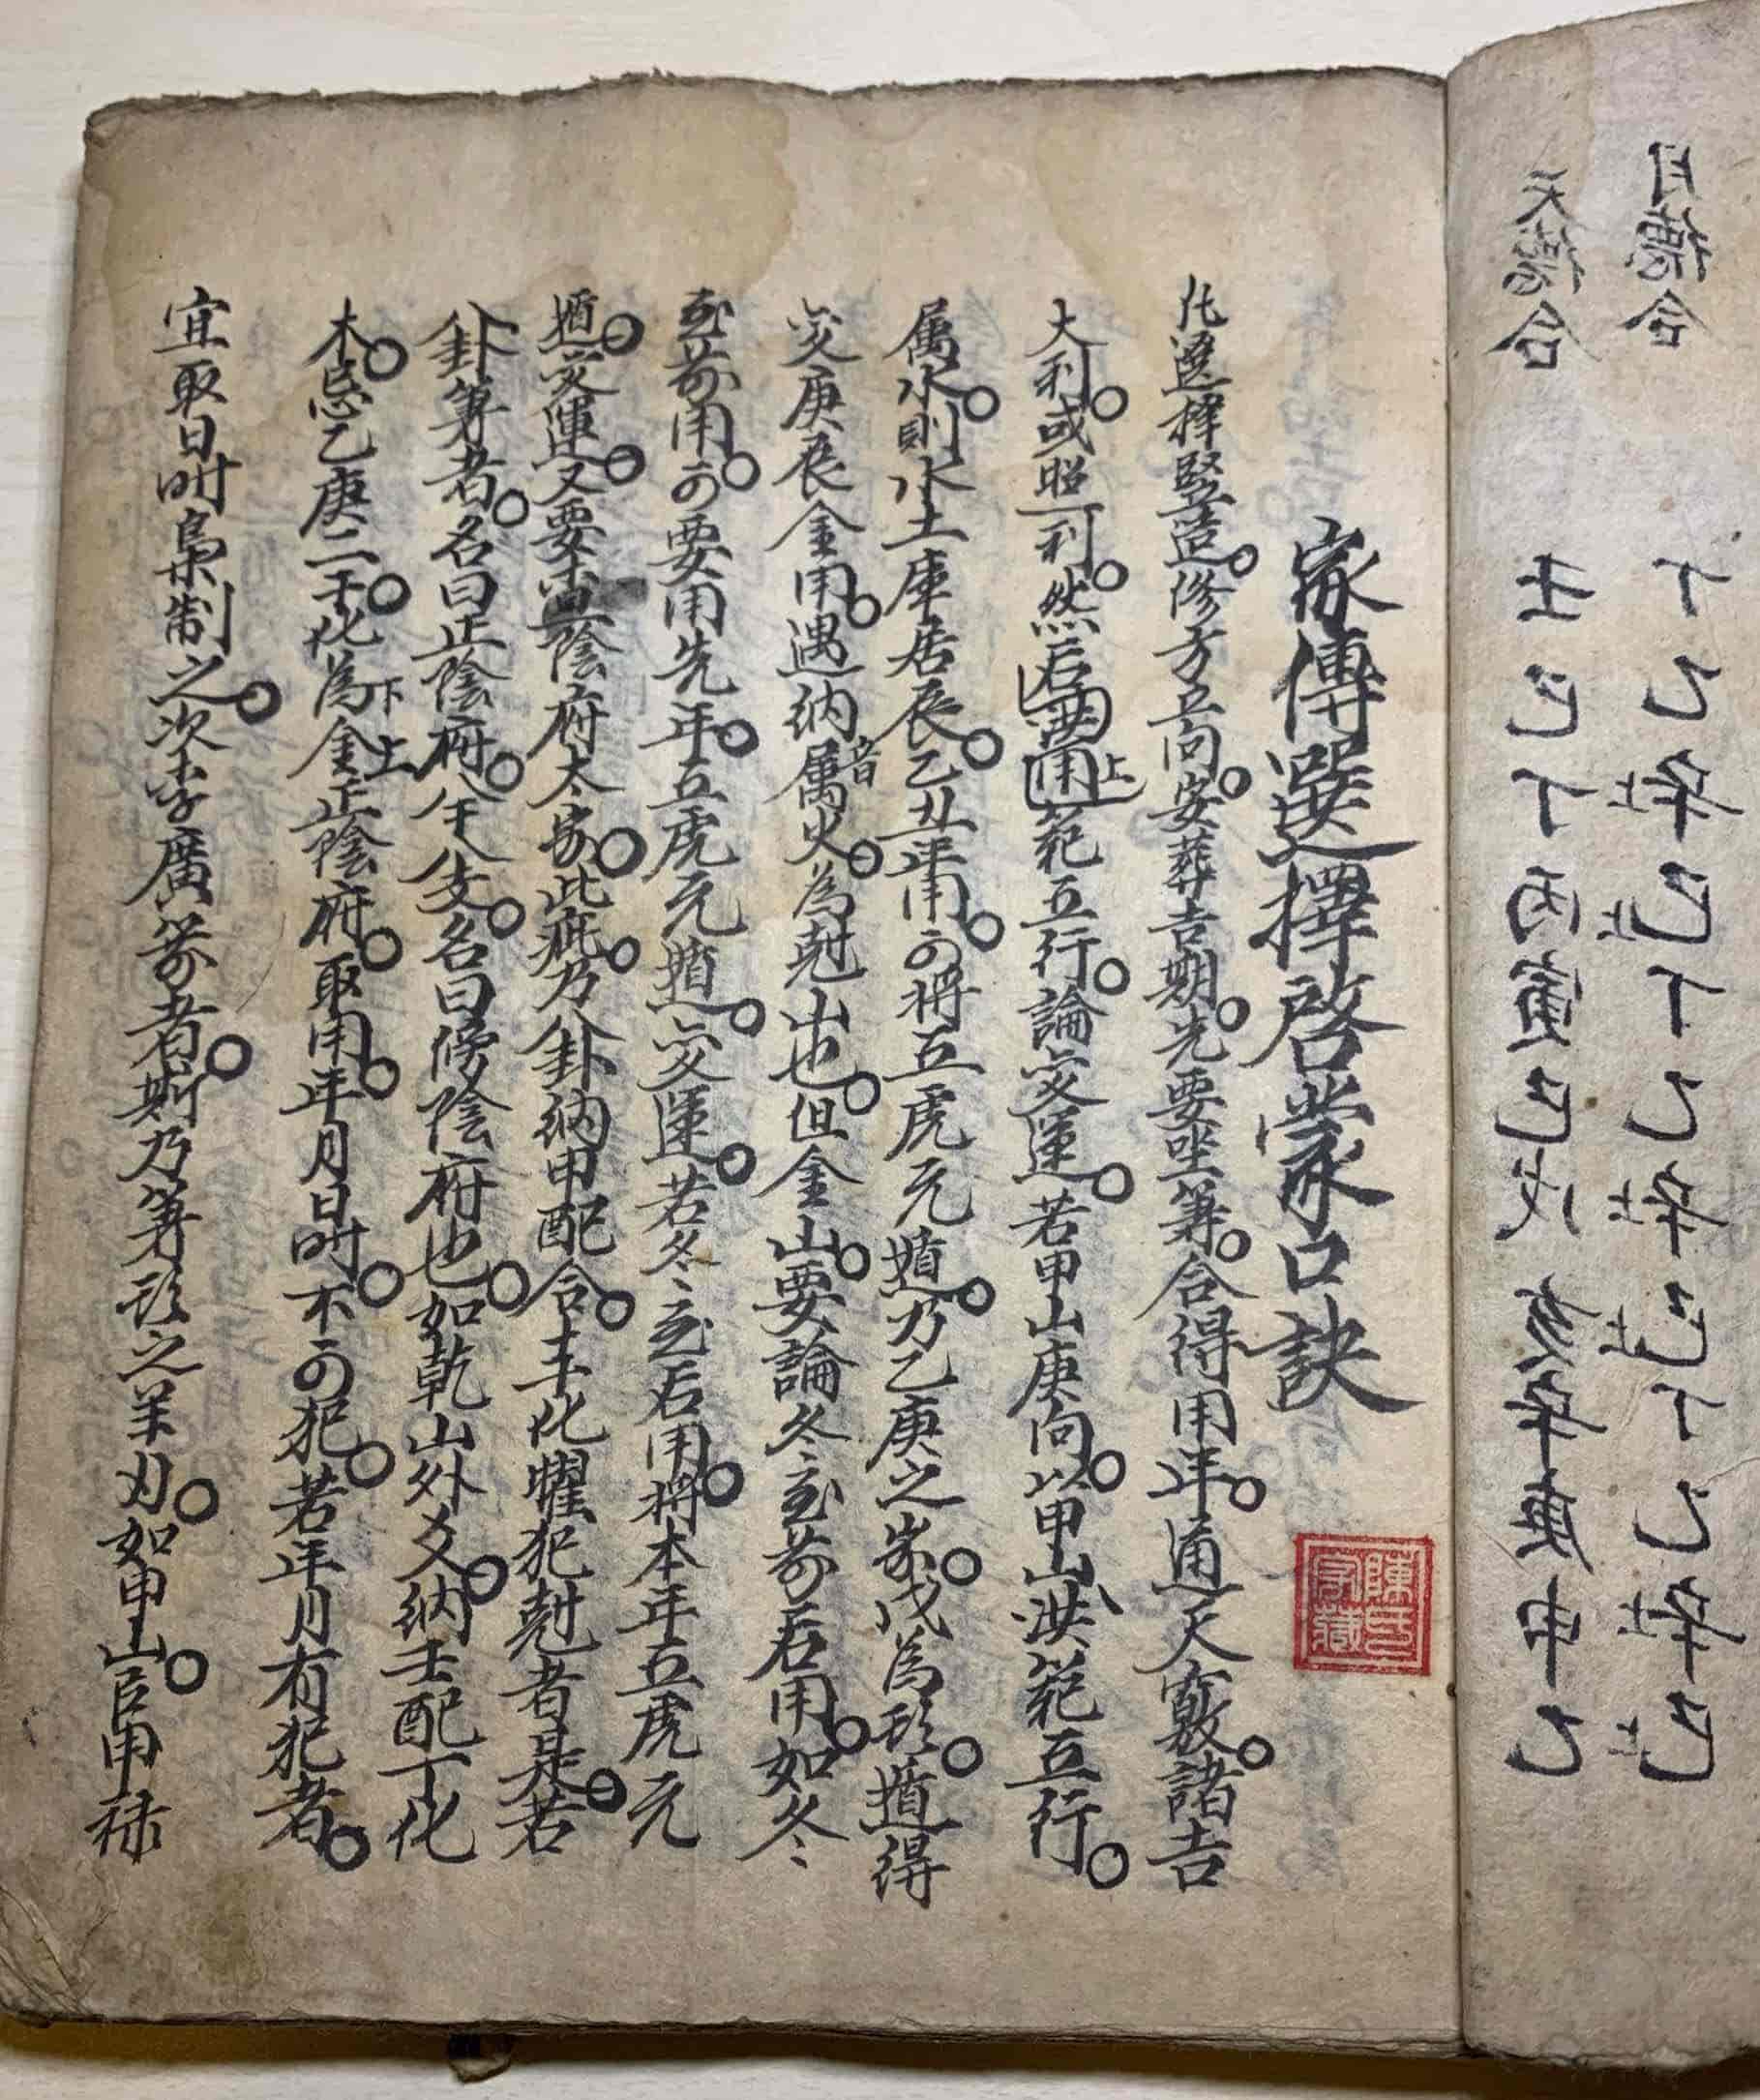 月德合 丁 乙 辛 己 丁 乙 辛 己 丁 乙 辛 己
天德合 壬 巳 丁 丙 寅 己 戊 亥 辛 庚 申 乙
家傳選擇啓蒙口訣
凡選擇竪造修方立向安葬吉期先要坐筭合得用年通天竅諸吉
大利或照利然后洪用上范五行論变運若甲山庚向以甲山洪范五行
属水則水土庫居辰乙丑年用可將五虎元遁乃乙庚之歲戊為頭遁得
変庚辰金用遇納音属火為尅山也但金山要論冬至前后用如冬
至前用可要用先年五虎元遁变運若冬至后用將本年五虎元
遁变運又要查陰府太歲此疵乃八卦納甲配合干化曜犯尅者是若
八卦筭者名曰正陰府八干八支名曰傍陰府也如乾山外爻納壬配丁化
木忌乙庚二干化為下金上正陰府取用年月日时不可犯若年月有犯者
宜取日时梟制之次李廣箭者斯乃筭頭之羊刃如甲山后甲祿
陳氏
字藏